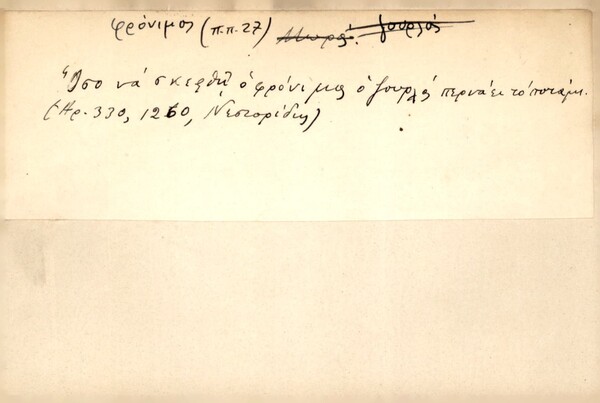 φρόνιμος (π.π. 27) Μωρός. ζουρλός
Ὅσο νά σκεφθῇ ὁ φρόνιμος ὁ ζουρλός περνάει τό ποτάμι.
(Ἀρ. 330, 1260, Νεστορίδης)